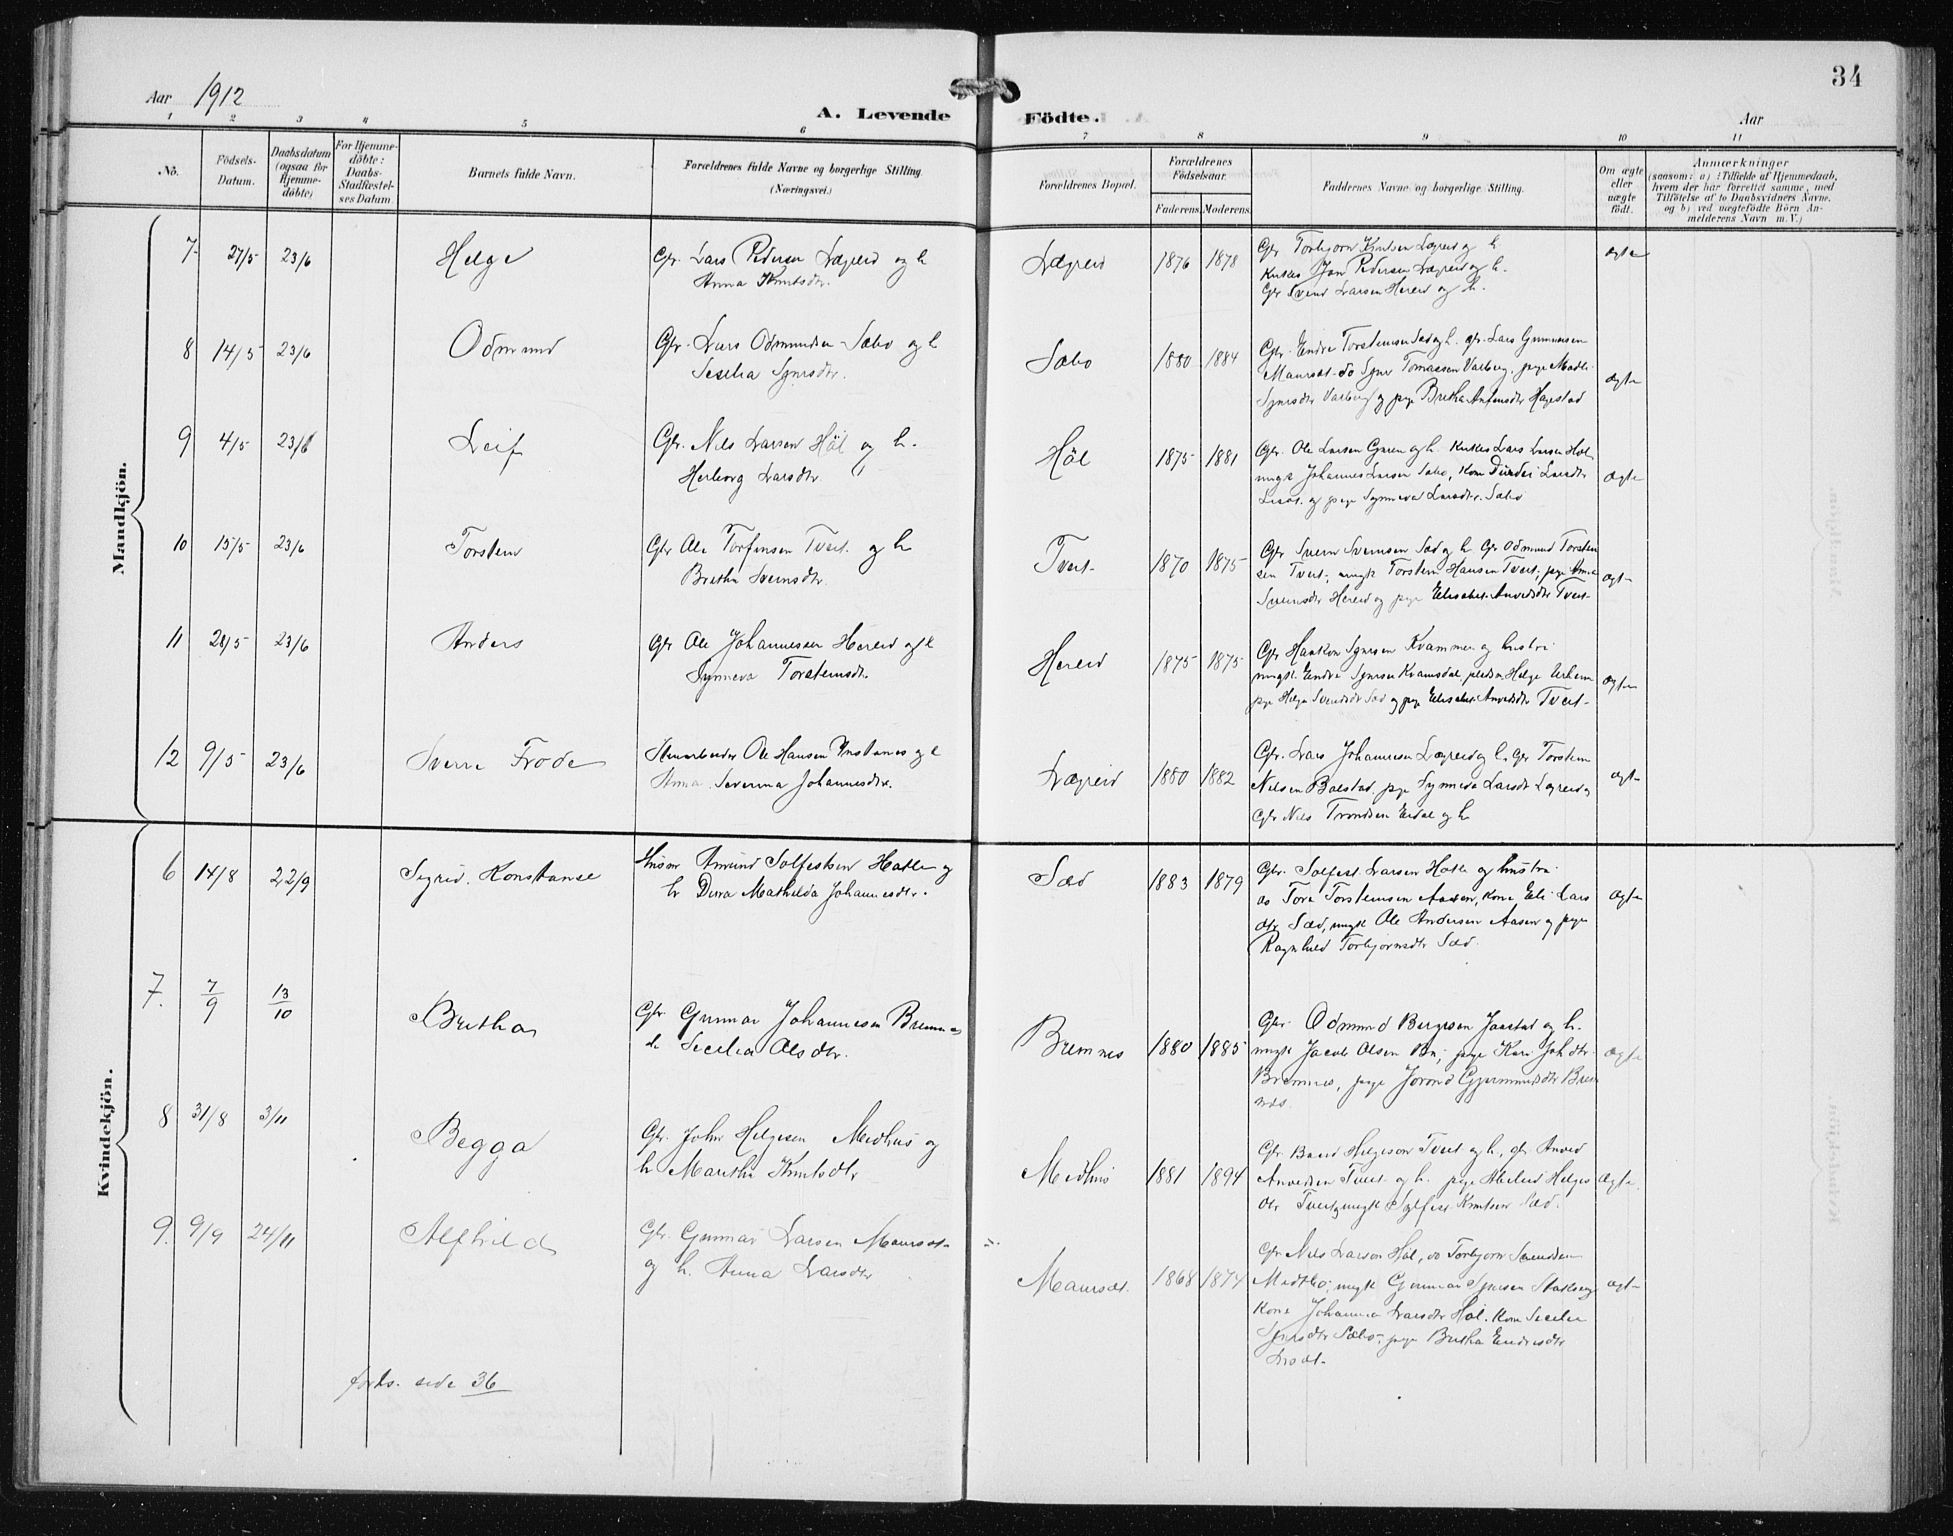 34
Aar 1912
A. Levende Födte.
Aar
1 2 3 4 5 6 7 8 9 10 11
No.
Födsels-
Datum.
Daabsdatum
(ogsaa for
Hjemme-
döbte)
For Hjemme-
döbte:
Daabs-
Stadfæstel-
ses Datum.
Barnets fulde Navn.
Forældrenes fulde Navne og borgerlige Stilling.
(Næringsvei.)
Forældrenes Bopæl.
Forældrenes
Födselsaar.
Faderens. Moderens.
Faddernes Navne og borgerlige Stilling.
Om ægte
eller
uægte
födt.
Anmærkninger
(saasom: a) i Tilfælde af Hjemmedaab,
hvem der har forrettet samme, med
Tilföielse af to Daabsvidners Navne,
og b) ved uægtefödte Börn An-
melderens Navn m. V.)
Mandkjön.
7 27/5 23/6 Helge
Gbr. Lars Pedersen Lægreid og h
Anna Knutsdtr.
Lægreid 1876 1878
Gbr Torbjorn Knutsen Lægreid og h.
Kirkes. Jon Pedersen Lægreid og h.
Gbr Svend Larsen Hereid og h.
ægte
8 14/5 23/6 Odmund
Gbr. Lars Odmundsen Sæbo og h
Sesilia Sjursdtr.
Sæbo 1880 1884
Gbr. Endre Torsteinsen Sæd og h. gbr. Lars Gunnarsen
Maursæt. do Sjur Tomassen Varberg, pige Madli
Sjursdtr Varberg og pige Bretha Anfinsdtr Hagestad
ægte
9 4/5 23/6 Leif
Gbr. Nils Larsen Höl og h.
Herborg Larsdtr.
Höl 1875 1881
Gbr. Ole Larsen Garen og h. Kirkes Lars Larsen Höl
ungk Johannes Larsen Sæbo, Kone Larsdtr
og pige Synneva Larsdtr. Sæbo
ægte
10 15/5 23/6 Torstein
Gbr Ole Torfinsen Tveit. og h
Bretha Sveinsdtr.
Tveit 1870 1875
Gbr Svein Sveinsen Sæd og h. Gbr Odmund Torstein
sen Tveit, ungk Torstein Hansen Tveit, pige Anna
Sveinsdtr Hereid og pige Elisabet Anvedsdtr Tveit
ægte
11 28/5 23/6 Anders
Gbr Ole Johannessen Hereid og h
Synneva Torsteinsdtr.
Hereid 1875 1875
Gbr Haakon Sjursen Kvammen og hustru
ungk. Endre Sjursen Kvamsdal, Helge Erheim
pige Helga Sveinsdtr Sæd og pige Elisabet Anvedsdtr Tveit
ægte
12 9/5 23/6 Sverre Frode
Stenarbeider Ole Hansen Ystanes og h
Anna Severina Johannesdtr.
Lægreid 1880 1882
Gbr. Lars Johannesen Lægreid og h. Gbr Torstein
Nilsen Bolstad, pige Synneva Larsdt Lægreid og
Gbr Nils Trondsen Eidal og h
ægte
Kvindekjön.
6 14/8 22/9 Sigrid Konstanse
Husm Amund Solfestsen Hatle og
h Dina Mathilda Johannesdtr.
Sæd 1883 1879
Gbr. Solfest Larsen Hatle og hustru
do Tore Torsteinsen Aasen, Kone Eli Lars
dtr Sæd, ungk Ole Andersen Aasen og pige
Ragnhild Torbjornsdtr Sæd.
ægte
7. 7/9 13/10 Bretha
Gbr Gunnar Johannesen Bremnes
h Secilia Olsdtr.
Bremnes 1880 1885
Gbr. Odmund Børgesen Jaastad og h.
ungk Jacob Olsen Br; pige Kari Johdtr
Bremnes, pige Jorond Gjermundsdtr Brem
nes.
ægte
8 31/8 3/11 Begga
Gbr. John Helgesen Medhus og
h. Maritha Knutsdtr
Medhus 1881 1894
Gbr Baard Helgeson Tveit og h, gbr Anved
Anvedsen Tveit og h. pige Helges
dtr Tveit og ungk Sylfest Knutsen Sæd.
ægte.
9. 9/9 24/11 Alfhild
Gbr. Gunnar Larsen Maursæt
og h. Anna Larsdtr
Maursæt. 1868 1874
Gbr Nils Larson Höl, do Torbjorn Sveindsen
Medtbo; ungk Gunnar Sjursen
Kone Johanna Larsdtr Höl. Kone Secilia
Sjursdtr Sæbo, pige Bretha Endresdtr
ægte
forts. side 36